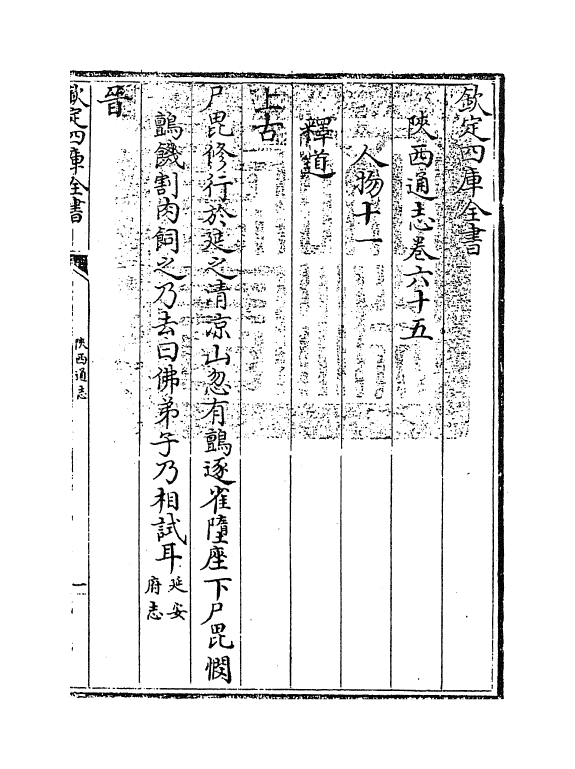 欽定四庫全書
陜西通志卷六十五
人物十一
釋道
上古
尸毘修行於延之清涼山忽有鸇逐雀墮座下尸毘憫
鸇饑割肉飼之乃去曰佛弟子乃相試耳延安府志
晉
欽定四庫全書
陜西通志
一